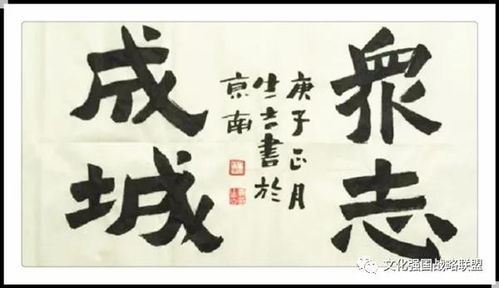 眾志
成城
庚子正月
書於
京南
文化强国战略联盟